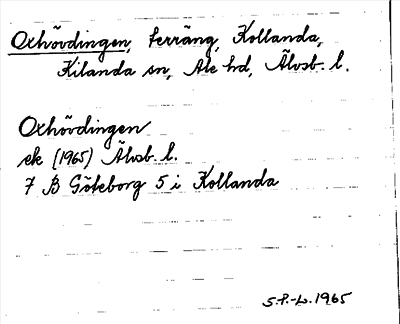 Oxhövdingen, terräng, Kollanda,
Kilanda sn, Ale hd, Älvsb. l.
Oxhövdingen
ek (1965) Älvsb. l.
7 B Göteborg 5 i Kollanda
S.P.-L. 1965